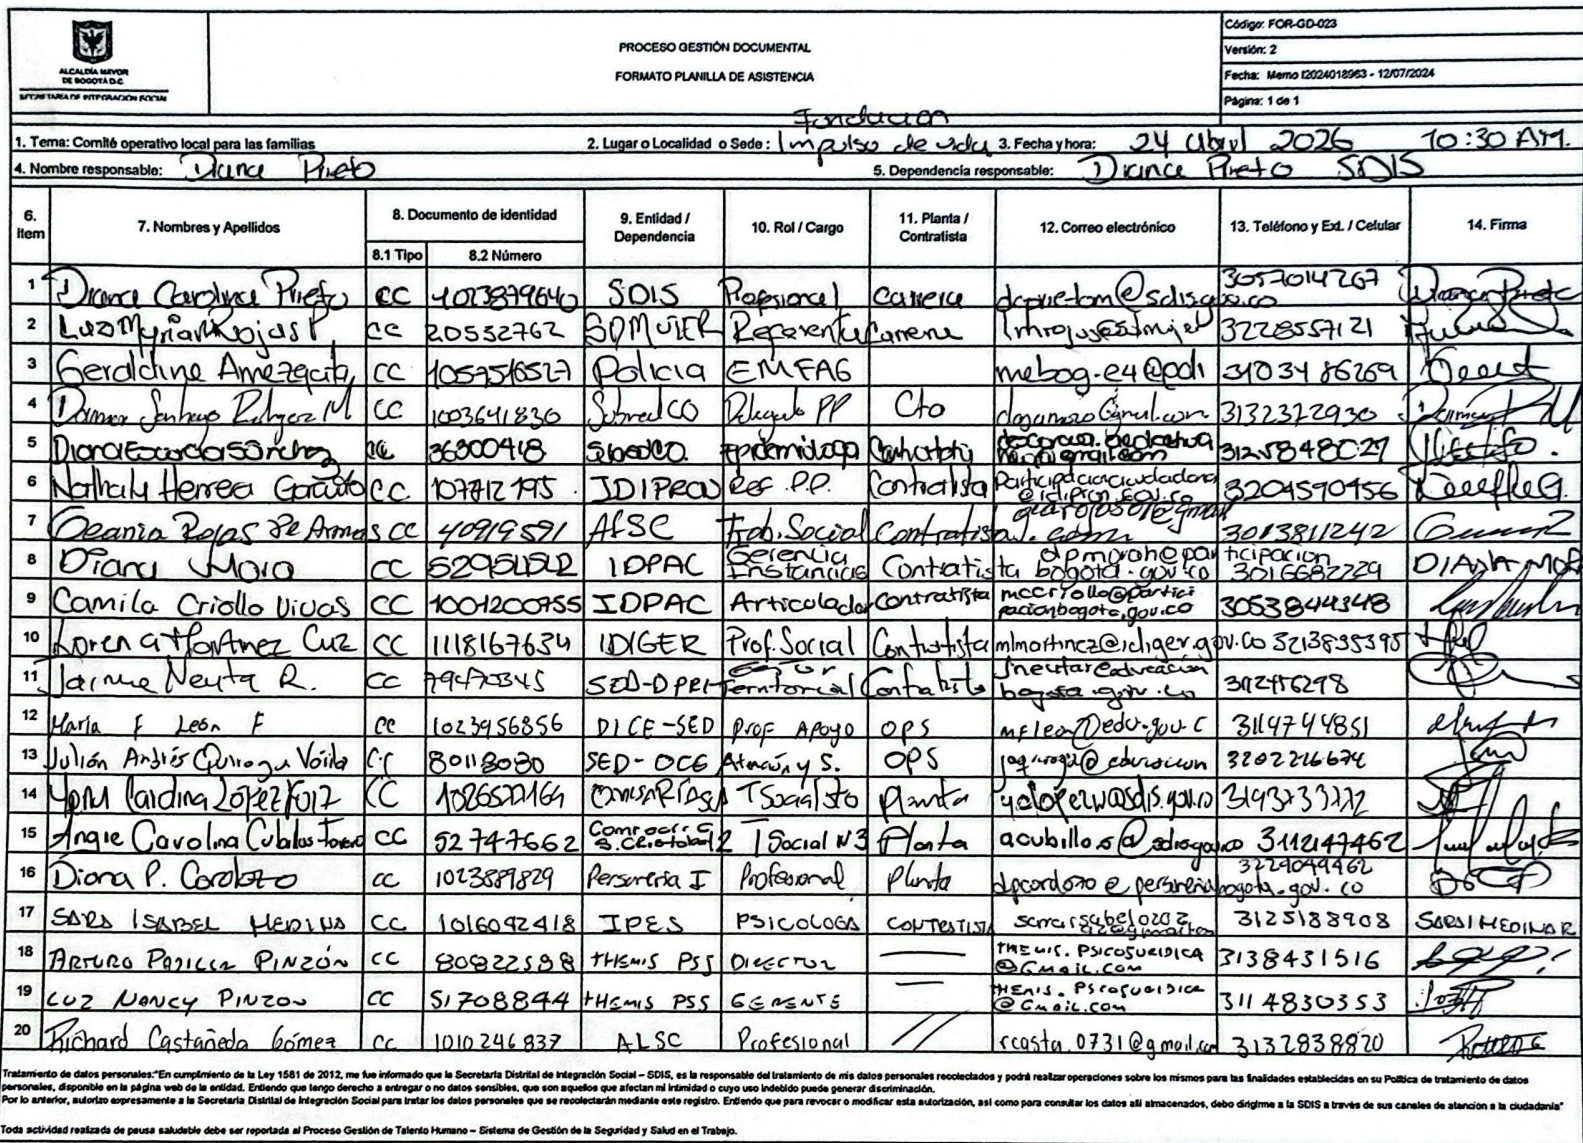 ALCALDÍA MAYOR
DE BOGOTÁ D.C.
SECRETARÍA DE INTEGRACIÓN SOCIAL
PROCESO GESTIÓN DOCUMENTAL
FORMATO PLANILLA DE ASISTENCIA
Código: FOR-GD-023
Versión: 2
Fecha: Memo I2024018963 - 12/07/2024
Página: 1 de 1
1. Tema: Comité operativo local para las familias 2. Lugar o Localidad o Sede: Fundacion Impulso de vida 3. Fecha y hora: 24 abril 2026 10:30 AM.
4. Nombre responsable: Diana Prieto 5. Dependencia responsable: Diana Prieto SDIS
6. Item 7. Nombres y Apellidos 8. Documento de identidad 8.1 Tipo 8.2 Número 9. Entidad / Dependencia 10. Rol / Cargo 11. Planta / Contratista 12. Correo electrónico 13. Teléfono y Ext. / Celular 14. Firma
1 Diana Carolina Prieto CC 4023879640 SDIS Profesional Carrera 3057014267 Diana Prieto
2 Luz Myriam Rojas P. CC 20532762 SDMUJER Referente Carrera 3228557121
3 Geraldine Amezquita CC 1057516527 Policia EMFAG mebog.e4@poli 3103486269
4 CC 1003641830 Subred CO Delegado PP Cto 3132372930
5 Diana Escarda Sánchez CC 36300418 Epidemióloga Contratista 3125848027
6 Nathaly Herrera CC 107712195 IDIPRON Ref. P.P. Contratista participacionciudadana @idipron.gov.co 3204590456
7 Geania Rojas De Armas CC 40919591 Trab. Social Contratista 3013811242
8 Diana Mora CC 529515112 IDPAC Gerencia Instancias Contratista dpmora@participacion bogota.gov.co 3016682229 DIANA MOR
9 Camila Criollo Vivas CC 1001200755 IDPAC Articulador Contratista mccriollo@partici pacionbogota.gov.co 3053844348
10 Lorena Martinez Cuz CC 1118167634 IDIGER Prof. Social Contratista mlmartinez@idiger.gov.co 3213835395
11 Jaime Neuta R. CC 79470345 SED-DPRI Gestor Territorial Contratista 3112456298
12 Maria F León F CC 1023956856 DICE-SED Prof Apoyo OPS mfleon@edu.gov.c 3114744851
13 Julián Andrés Quiroga CC 80118080 SED-OCE OPS 3202216674
14 CC 1026577164 T Social Planta 3143733112
15 Angie Carolina Cubillos CC 52747662 T Social N3 Planta 3112147462
16 Diana P. Cardozo CC 1023889829 Personeria I Profesional Planta dpcardozo@personeriabogota.gov.co 3229049462
17 SARA ISABEL MEDINA CC 1016092418 IPES PSICOLOGA CONTRATISTA 3125188908 SARA I MEDINA R
18 ARTURO PADILLA PINZÓN CC 80822588 THEMIS PSS DIRECTOR THEMIS.PSICOJURIDICA @GMAIL.COM 3138431516
19 LUZ NANCY PINZON CC 51708844 THEMIS PSS GERENTE THEMIS.PSICOJURIDICA @GMAIL.COM 3114830353
20 Richard Castañeda Gómez CC 1010246837 ALSC Profesional // rcasta.0731@gmail.com 3132838820
Tratamiento de datos personales:"En cumplimiento de la Ley 1581 de 2012, me fue informado que la Secretaría Distrital de Integración Social – SDIS, es la responsable del tratamiento de mis datos personales recolectados y podrá realizar operaciones sobre los mismos para las finalidades establecidas en su Política de tratamiento de datos
personales, disponible en la página web de la entidad. Entiendo que tengo derecho a entregar o no datos sensibles, que son aquellos que afectan mi intimidad o cuyo uso indebido puede generar discriminación.
Por lo anterior, autorizo expresamente a la Secretaría Distrital de Integración Social para tratar los datos personales que se recolectarán mediante este registro. Entiendo que para revocar o modificar esta autorización, así como para consultar los datos allí almacenados, debo dirigirme a la SDIS a través de sus canales de atención a la ciudadanía"
Toda actividad realizada de pausa saludable debe ser reportada al Proceso Gestión de Talento Humano – Sistema de Gestión de la Seguridad y Salud en el Trabajo.